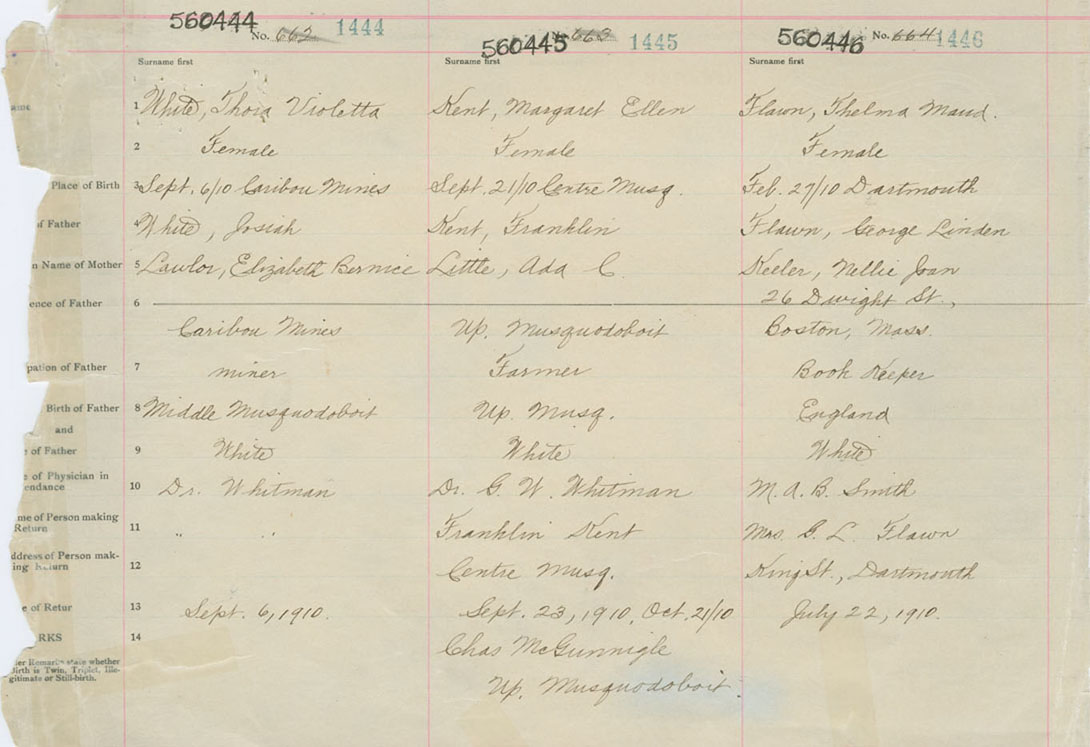 560444 No. 662 1444
560445 No. 663 1445
560446 No. 664 1446
Surname first Surname first Surname first
1 White, Thora Violetta Kent, Margaret Ellen Flawn, Thelma Maud.
2 Female Female Female
Place of Birth 3 Sept. 6/10 Caribou Mines Sept. 21/10 Centre Musq. Feb. 27/10 Dartmouth
of Father 4 White, Josiah Kent, Franklin Flawn, George Linden
n Name of Mother 5 Lawlor, Elizabeth Bernice Little, Ada C. Keeler, Nellie Joan
ence of Father 6 26 Dwight St.,
Caribou Mines Up. Musquodoboit Boston, Mass.
pation of Father 7 miner Farmer Book Keeper
Birth of Father 8 Middle Musquodoboit Up. Musq. England
and
of Father 9 White White White
e of Physician in
endance 10 Dr. Whitman Dr. G. W. Whitman M. A. B. Smith
me of Person making
Return 11 " " Franklin Kent Mrs. G. L. Flawn
ddress of Person mak-
ing Return 12 Centre Musq. King St., Dartmouth
e of Retur 13 Sept. 6, 1910. Sept. 23, 1910, Oct. 21/10 July 22, 1910.
RKS 14 Chas McGunnigle
der Remarks state whether
Birth is Twin, Triplet, Ille-
gitimate or Still-birth.
Up. Musquodoboit.